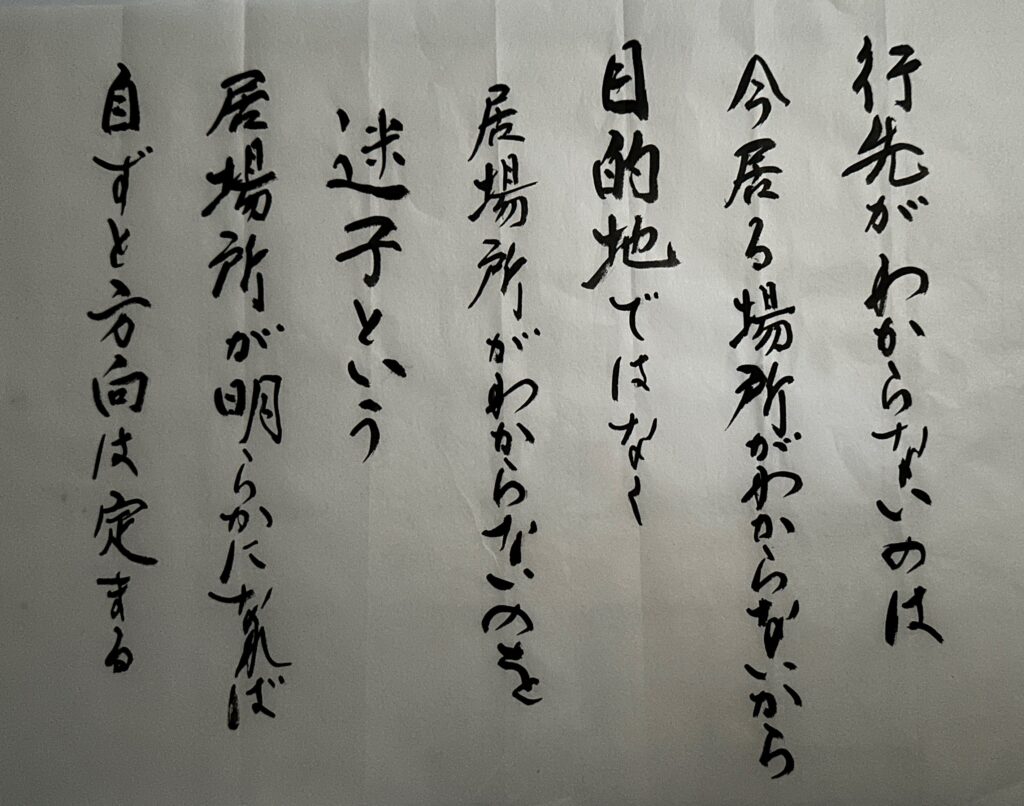 行先がわからないのは
今居る場所がわからないから
目的地ではなく
居場所がわからないのを
迷子という
居場所が明らかになれば
自ずと方向は定まる